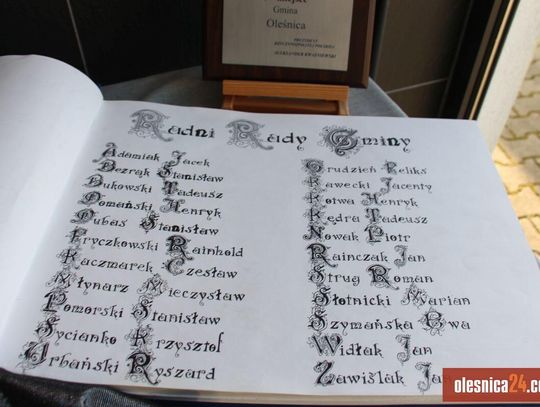 Gmina
Oleśnica
PREZYDENT
RZECZYPOSPOLITEJ POLSKIEJ
ALEKSANDER KWAŚNIEWSKI
Radni Rady Gminy
Adamiak Jacek
Bezrąk Stanisław
Bukowski Tadeusz
Domański Henryk
Dubas Stanisław
Fryczkowski Rainhold
Kaczmarek Czesław
Młynarz Mieczysław
Pomorski Stanisław
Sycianko Krzysztof
Urbański Ryszard
Grudzień Feliks
Kawecki Jacenty
Kotwa Henryk
Kędra Tadeusz
Nowak Piotr
Rainczak Jan
Strug Roman
Słotnicki Marian
Szymańska Ewa
Widłak Jan
Zawiślak Ja
olesnica24.c